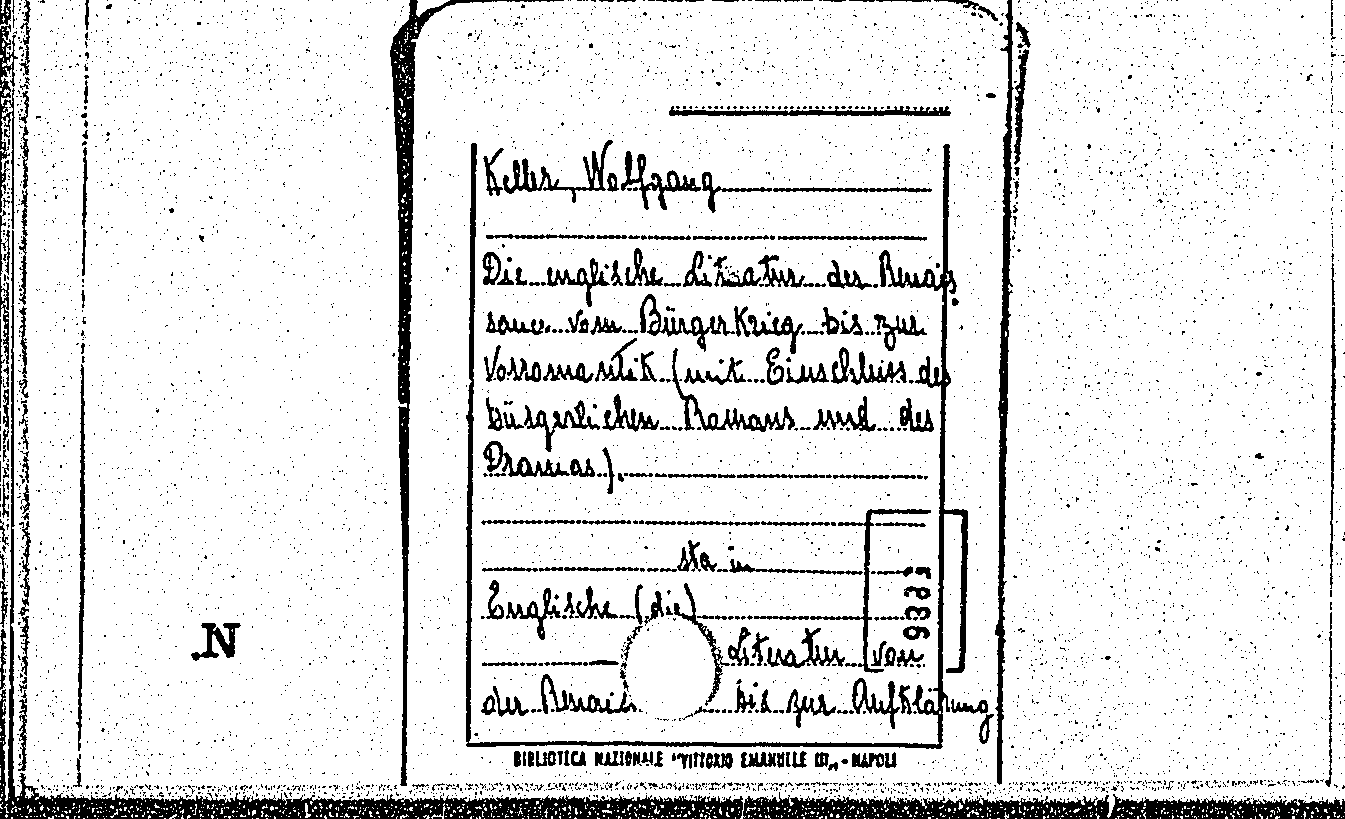 Keller, Wolfgang
Die englische Literatur der Renais
sance vom Bürgerkrieg bis zur
Vorromantik (mit Einschluss des
bürgerlichen Romans und des
Dramas).
sta in
Englische (die)
Literatur von
der Renais bis zur Aufklärung
BIBLIOTECA NAZIONALE "VITTORIO EMANUELE III„ - NAPOLI
N.